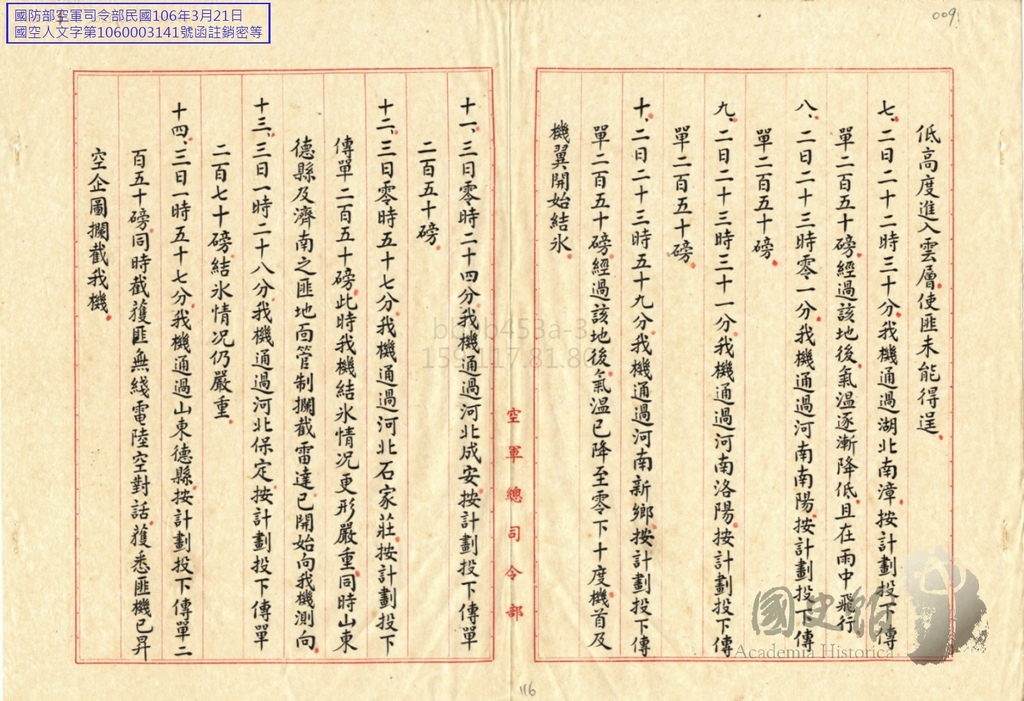 國防部空軍司令部民國106年3月21日
國空人文字第1060003141號函註銷密等
009
低高度進入雲層使匪未能得逞。
七、二日二十二時三十分我機通過湖北南漳按計劃投下傳
單二百五十磅經過該地後氣溫逐漸降低且在雨中飛行
八、二日二十三時零一分我機通過河南南陽按計劃投下傳
單二百五十磅。
九、二日二十三時三十一分我機通過河南洛陽按計劃投下傳
單二百五十磅
十、二日二十三時五十九分我機通過河南新鄉按計劃投下傳
單二百五十磅經過該地後氣溫已降至零下十度機首及
機翼開始結氷
空軍總司令部
十一、三日零時二十四分我機通過河北成安按計劃投下傳單
二百五十磅
十二、三日零時五十七分我機通過河北石家莊按計劃投下
傳單二百五十磅此時我機結氷情況更形嚴重同時山東
德縣及濟南之匪地面管制攔截雷達已開始向我機測向
十三、三日一時二十八分我機通過河北保定按計劃投下傳單
二百七十磅結氷情況仍嚴重
十四、三日一時五十七分我機通過山東德縣按計劃投下傳單二
百五十磅同時截獲匪無綫電陸空對話獲悉匪機已昇
空企圖攔截我機。
116
國史館
Academia Historica